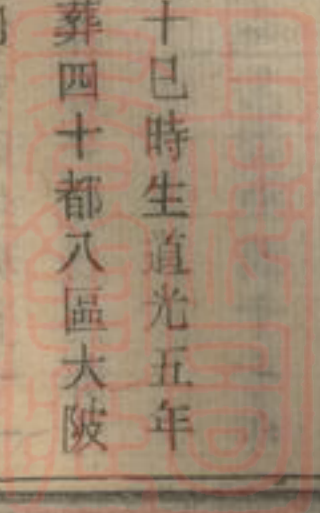 十巳時生道光五年
葬四十都八區大陂